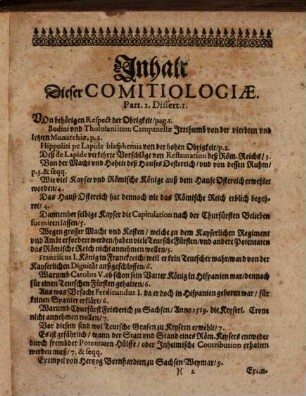 Inhalt
Dieser COMITIOLOGIÆ.
Part. 1. Dissert. 1.
VOn behörigen Respect der Obrigkeit/pag. 1.
Bodini vnd Tholosani item Campanellæ Irrthumb von der vierdten vnd
letzten Monarchiæ, p. 2.
Hippoliti pe Lapide blasphemia von der hohen Obrigkeit/p. 2.
Deß de Lapide verkehrte Vorschläge von Restauration deß Röm. Reichs/3.
Von der Macht vnd Hoheit deß Hauses Oesterreich/vnd von dessen Ruhm/
p. 3. & seqq.
Wie viel Kayser vnd Römische Könige auß dem Hause Oesterreich erwehlet
worden/4.
Das Hauß Oesterreich hat dennoch nie das Römische Reich erblich begeh-
ret/4.
Dannenher selbige Kayser die Capitulation nach der Churfürsten Belieben
formiren lassen/
Wegen grosser Macht vnd Kosten/welche zu dem Kayserlichen Regiment
vnd Ambt erfordert werden/haben viele Teutsche Fürsten/vnd andere Potentaten
das Römische Reich nicht annehmen wollen/
Franciscus I. König in Franckreich weil er kein Teutscher wahr/ward von der
Kayserlichen Dignität außgeschlossen/6.
Warumb Carolus V. ob schon sein Vatter König in Hispanien war/dennoch
für einen Teutschen Fürsten gehalten/6.
Auß was Vrsache Ferdinandus I. da er doch in Hispanien geboren war/für
keinen Spanier erklärt/6.
Warumb Churfürst Friederich zu Sachsen/Anno 1519. die Keyserl. Crone
nicht annehmen wollen/7.
Vor diesem sind wol Teutsche Grafen zu Keysern erwehlt/7.
Es ist gefährlich/wann der Staat vnd Stand eines Röm. Keysers entweder
durch frembder Potentaten Hülffe/oder Inhumische Contribution erhalten
werden muß/7. & seqq.
Exempel von Hertzog Bernhardten zu Sachsen Weymar/9.
Exem-